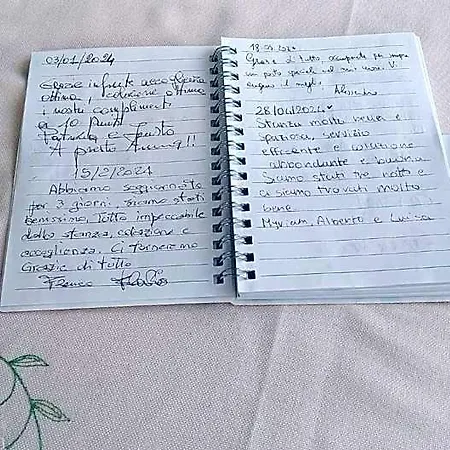 03/01/2024
Grazie infinite accoglienza
ottima, colazione ottima
i nostri complimenti
a 10 punti
Patrizia e Fausto
A presto
15/2/2024
Abbiamo soggiornato
per 3 giorni. Siamo stati
benissimo, tutto impeccabile
dalla stanza, colazione e
accoglienza. Ci torneremo
Grazie di tutto
Franco
Grazie di tutto, per sempre
un posto speciale nel mio cuore. Vi
auguro il meglio.
28/04/2024
Stanza molto bella e
spaziosa, servizio
efficiente e colazione
abbondante e buona.
Siamo stati tre notti e
ci siamo trovati molto
bene
Myriam, Alberto e Luisa